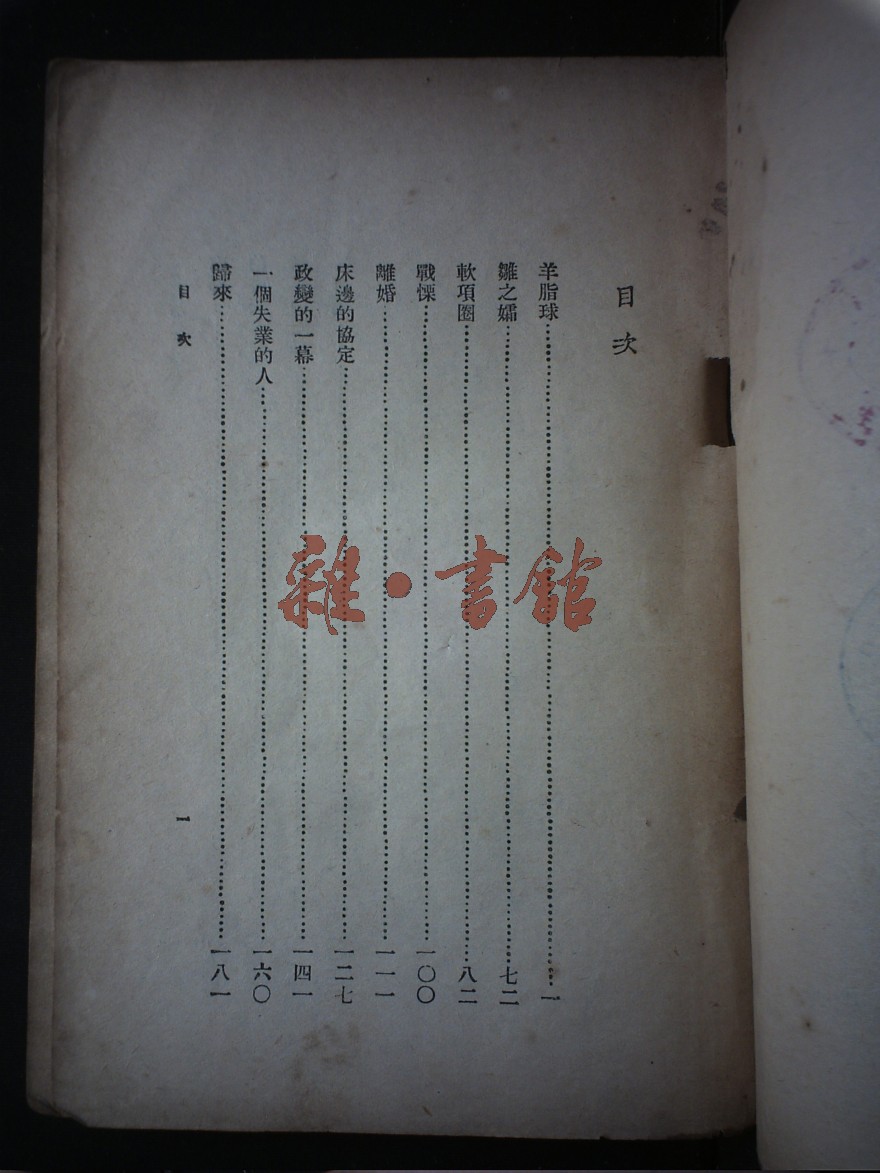 目次
羊脂球……一
雛之孀……七二
軟項圈……八二
戰慄……一〇〇
離婚……一一一
床邊的協定……一二七
政變的一幕……一四一
一個失業的人……一六〇
歸來……一八一
目次
一
雜·書館